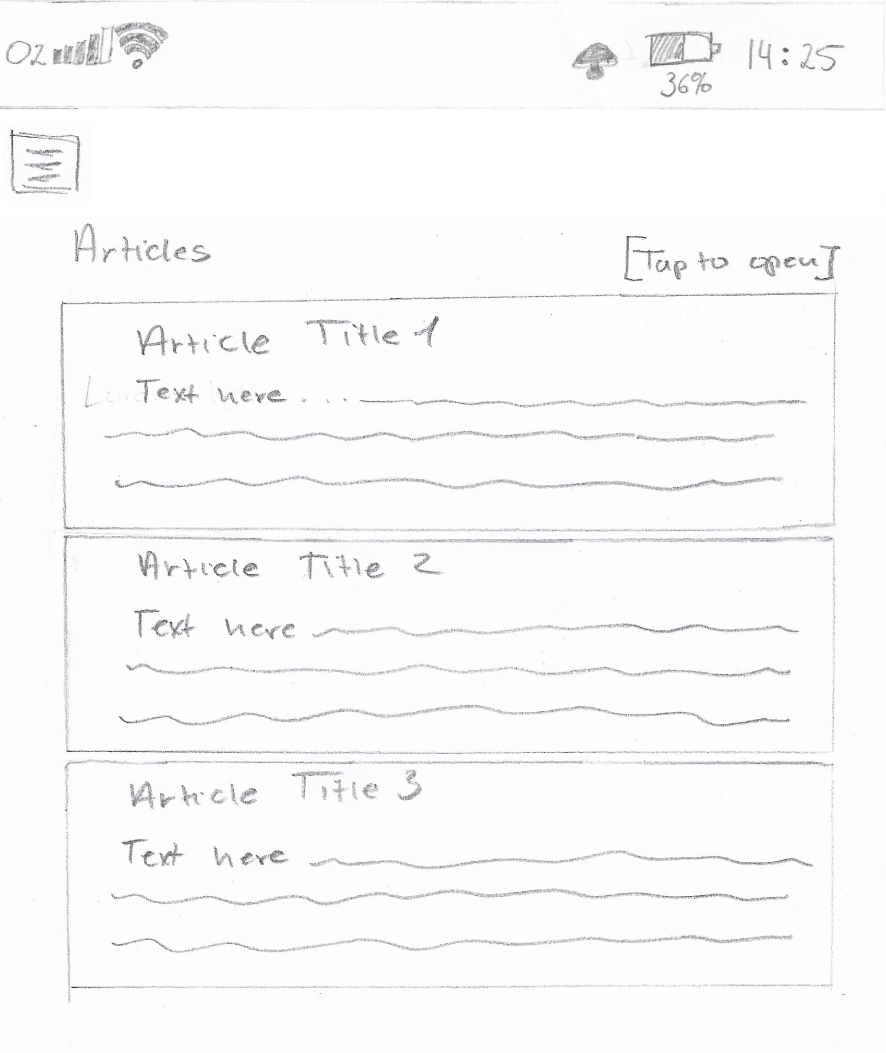 O2
36%
14:25
Articles
[Tap to open]
Article Title 1
Text here ...
Article Title 2
Text here
Article Title 3
Text here